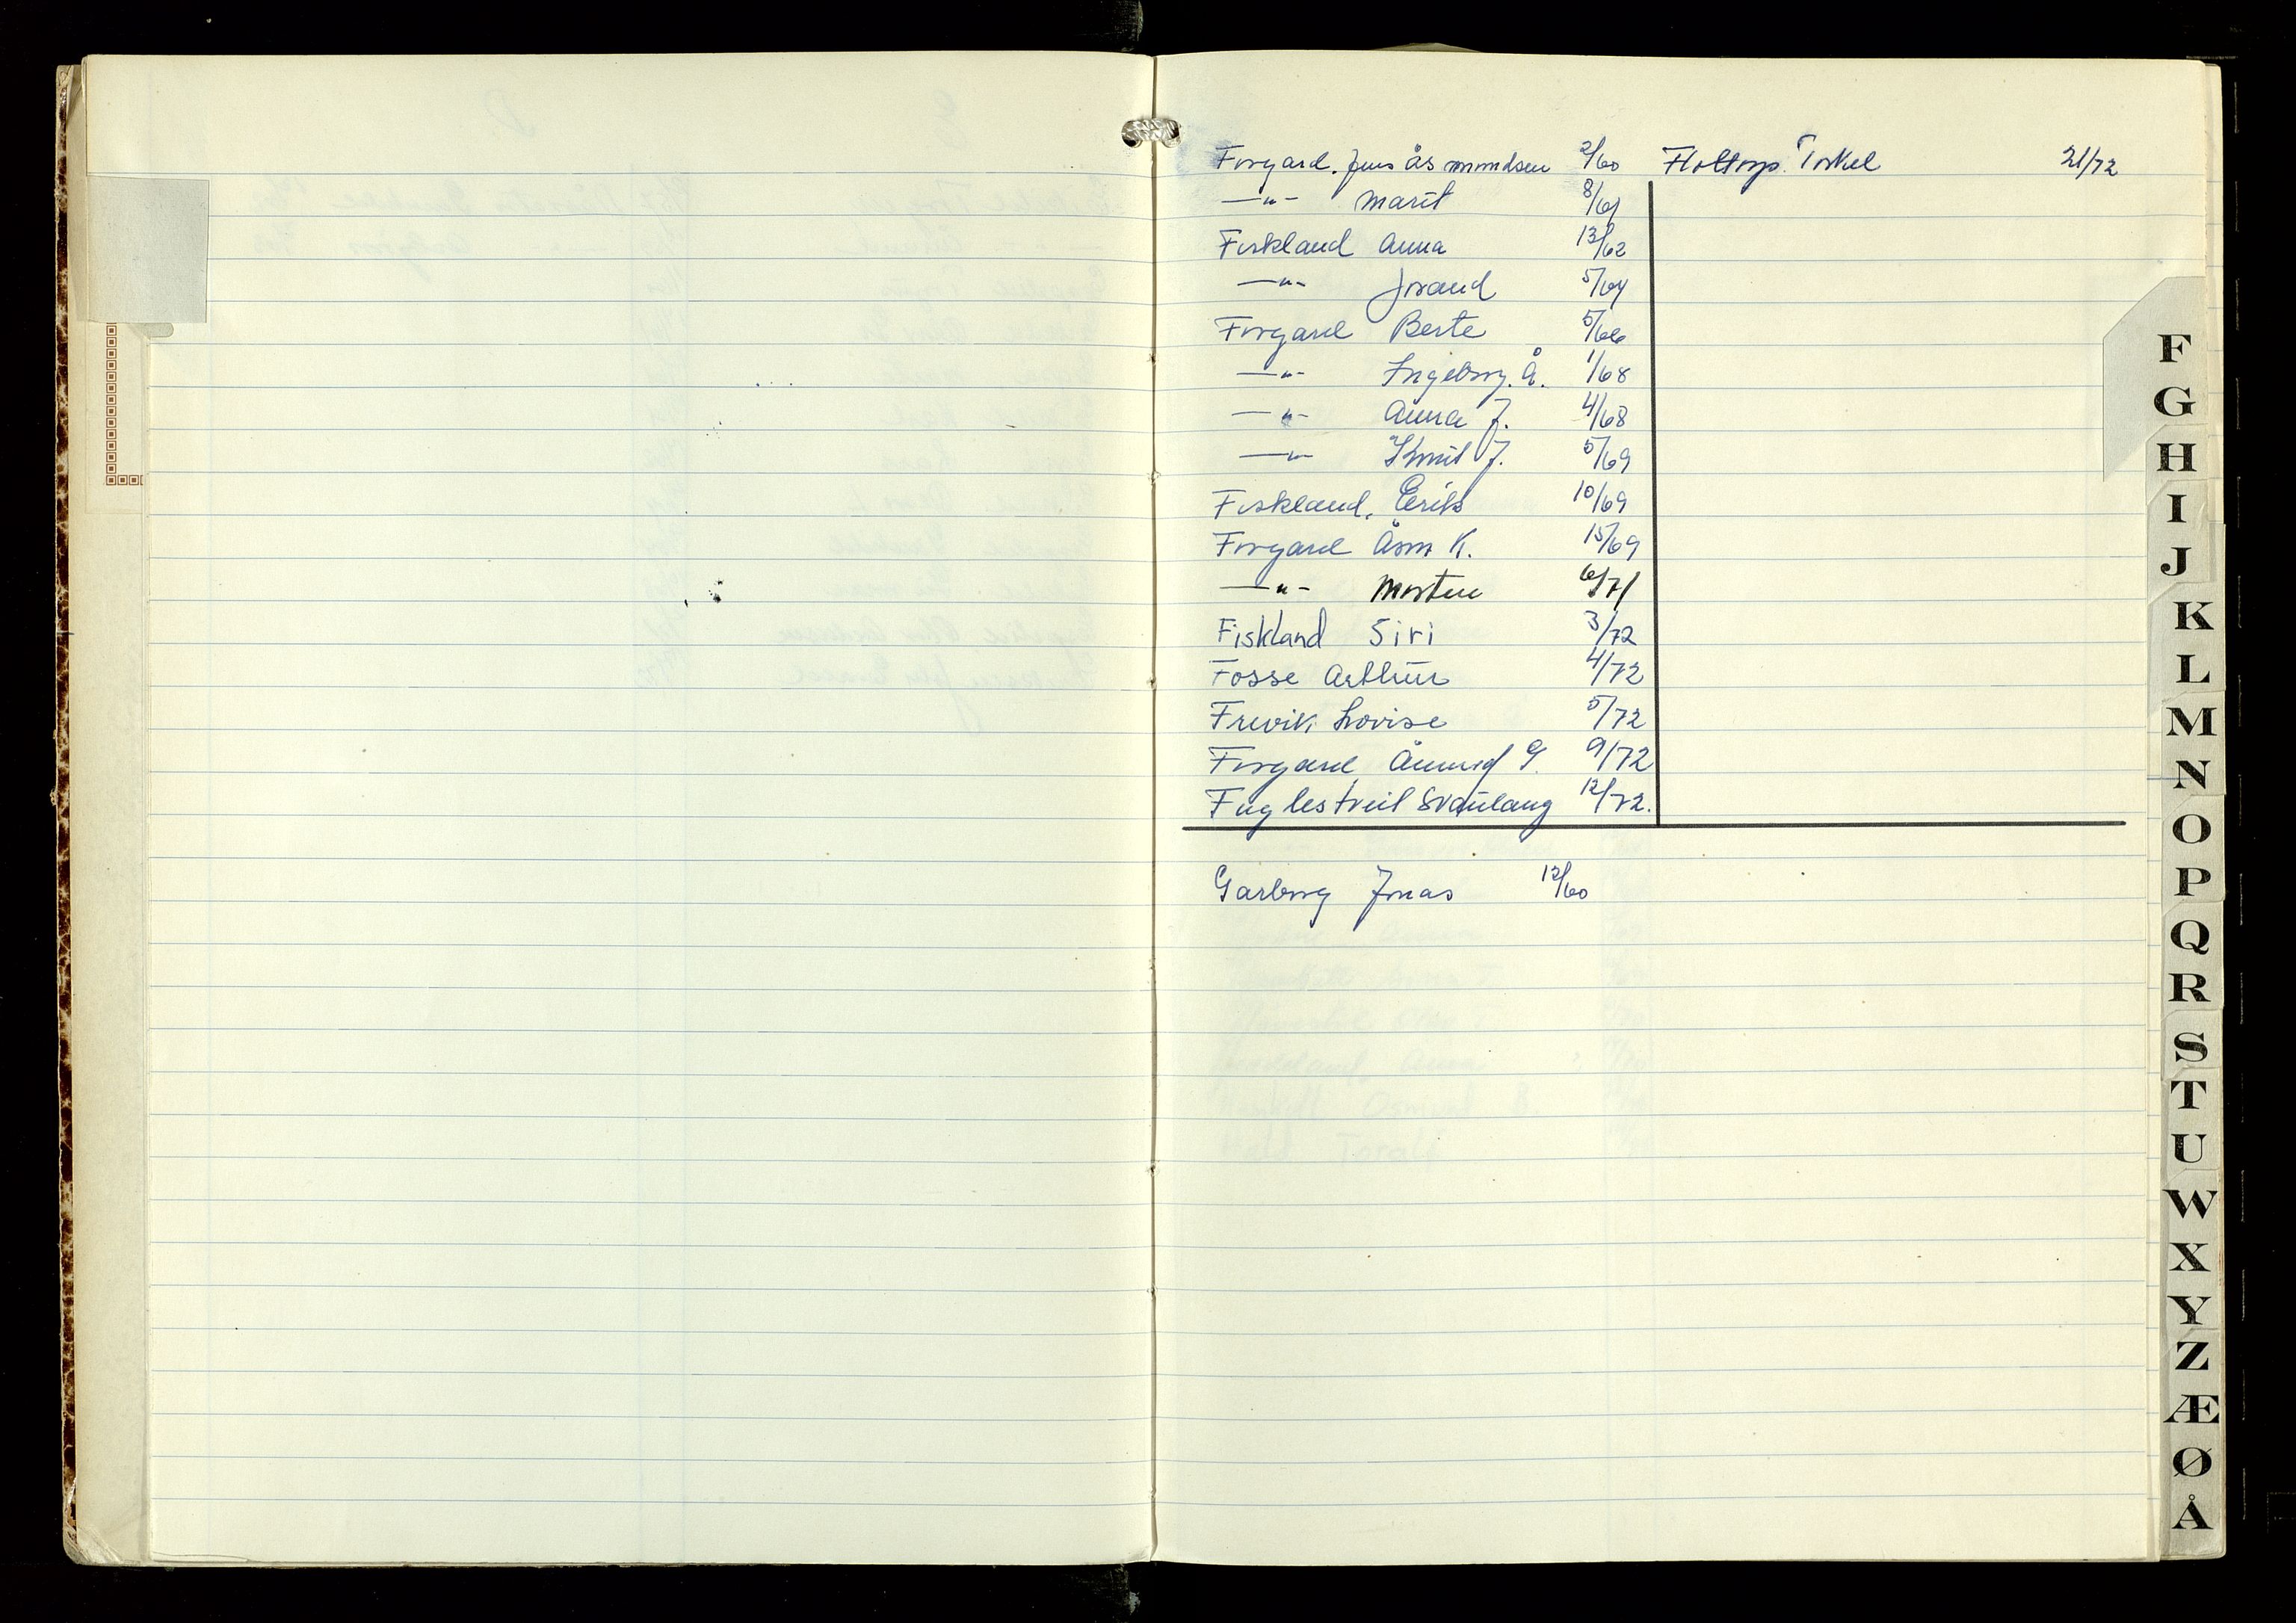 Forgard. Jens Åsmundsen 2/60
—"— Marit 8/61
Fiskland Anna 13/62
—"— Joraud 5/64
Forgard Berte 5/66
—"— Ingeborg. Å. 1/68
—"— Anna J. 4/68
—"— Knut J. 5/69
Fiskland. Eerik 10/69
Forgard Åsm K. 15/69
—"— Morten 6/71
Fiskland Siri 3/72
Fosse Arthur 4/72
Frevik Lovise 5/72
Forgard Åmund G. 9/72
Fuglestveit Svaulaug 12/72.
Flottorp. Torkel 21/72
Garborg Jonas 12/60
F
G
H
I
J
K
L
M
N
O
P
Q
R
S
T
U
W
X
Y
Z
Æ
Ø
Å